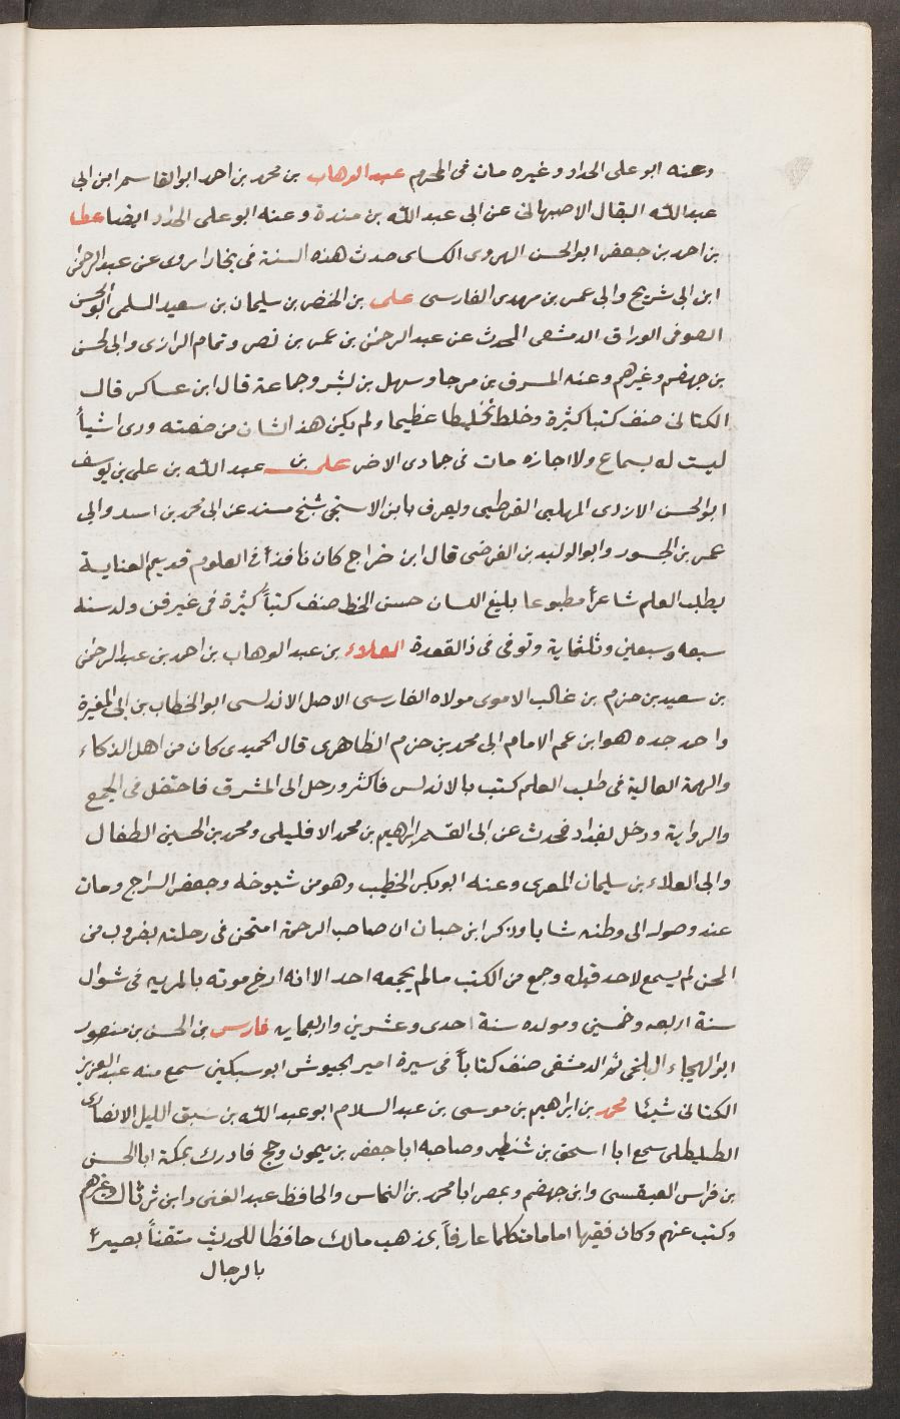 وعنه ابو على الحداد وغيره مات فى المحرم عبد الوهاب بن محمد بن احمد ابو القاسم ابن ابى
عبد الله البقال الاصبهانى عن ابى عبد الله بن مندة وعنه ابو على الحداد ايضا عطا
بن احمد بن جعفر ابو الحسن الهروى الكساى حدث هذه السنة فى بخارا يروى عن عبد الرحمن
ابن ابى شريح وابى عمر بن مهدى الفارسى على بن الخضر بن سليمان بن سعيد السلمى ابو الحسن
الصوفى الوراق الدمشقى المحدث عن عبد الرحمن بن عمر بن نصر وتمام الرازى وابى الحسن
بن جهضم وغيرهم وعنه المسرف بن مرجا وسهل بن بشر وجماعة قال ابن عساكر قال
الكتانى صنف كتبا كثيرة وخلط تخليطا عظيما ولم يكن هذا الشان من صنعته وروى اشيأ
ليست له بسماع ولا اجازه مات فى جمادى الاخر على بن عبد الله بن على بن يوسف
ابو الحسن الازدى المهلبى القرطبى ويعرف بابن الاستجى شيخ مسند عن ابى محمد بن اسد وابى
عمر بن الجسور وابو الوليد بن الفرضى قال ابن خراج كان نافذاً فى العلوم قديم العناية
بطلب العلم شاعراً مطبوعا بليغ اللسان حسن الخط صنف كتباً كثيرة فى غير فن ولد سنه
سبعه وسبعين وثلثماية وتوفى فى ذالقعدة العلاء بن عبد الوهاب بن احمد بن عبد الرحمن
بن سعيد بن حزم بن غالب الاموى مولاه الفارسى الاصل الاندلسى ابو الخطاب بن ابى المغيرة
واحمد جده هو ابن عم الامام ابى محمد بن حزم الظاهرى قال الحميدى كان من اهل الذكاء
والهمة العالية فى طلب العلم كتب بالاندلس فاكثر ورحل الى المشرق فاحتفل فى الجمع
والرواية ودخل بغداد فحدث عن ابى القسم ابراهيم بن محمد الافليلى ومحمد بن الحسين الطفال
وابى العلاء بن سليمان المعرى وعنه ابو بكر الخطيب وهو من شيوخه وجعفر السراج ومات
عند وصوله الى وطنه شابا وذكر ابن حبان ان صاحب الرحمة امتحن فى رحلته بضروب من
المحن لم يسمع لاحد قبله وجمع من الكتب مالم يجمعه احد الا انه ارخ موته بالمريه فى شوال
سنة اربعه وخمسين ومولده سنة احدى وعشرين واربعمايه فارس بن الحسن بن منصور
ابو الهيجاء البلخى ثم الدمشقى صنف كتاباً فى سيرة امير الجيوش ابو سبكين سمع منه عبد العزيز
الكتانى شيئا محمد بن ابراهيم بن موسى بن عبد السلام ابو عبد الله بن شق الليل الانصارى
الطليطلى سمع ابا اسحق بن شنظير وصاحبه ابا جعفر بن ميمون وحج فادرك بمكة ابا الحسن
بن فراس العبقسى وابن جهضم وبمصر ابا محمد بن النحاس والحافظ عبد الغنى وابن ثرثال وغيرهم
وكتب عنهم وكان فقيها اماما متكلما عارفاً بمذهب مالك حافظا للحديث متقناً بصيراً
بالرجال